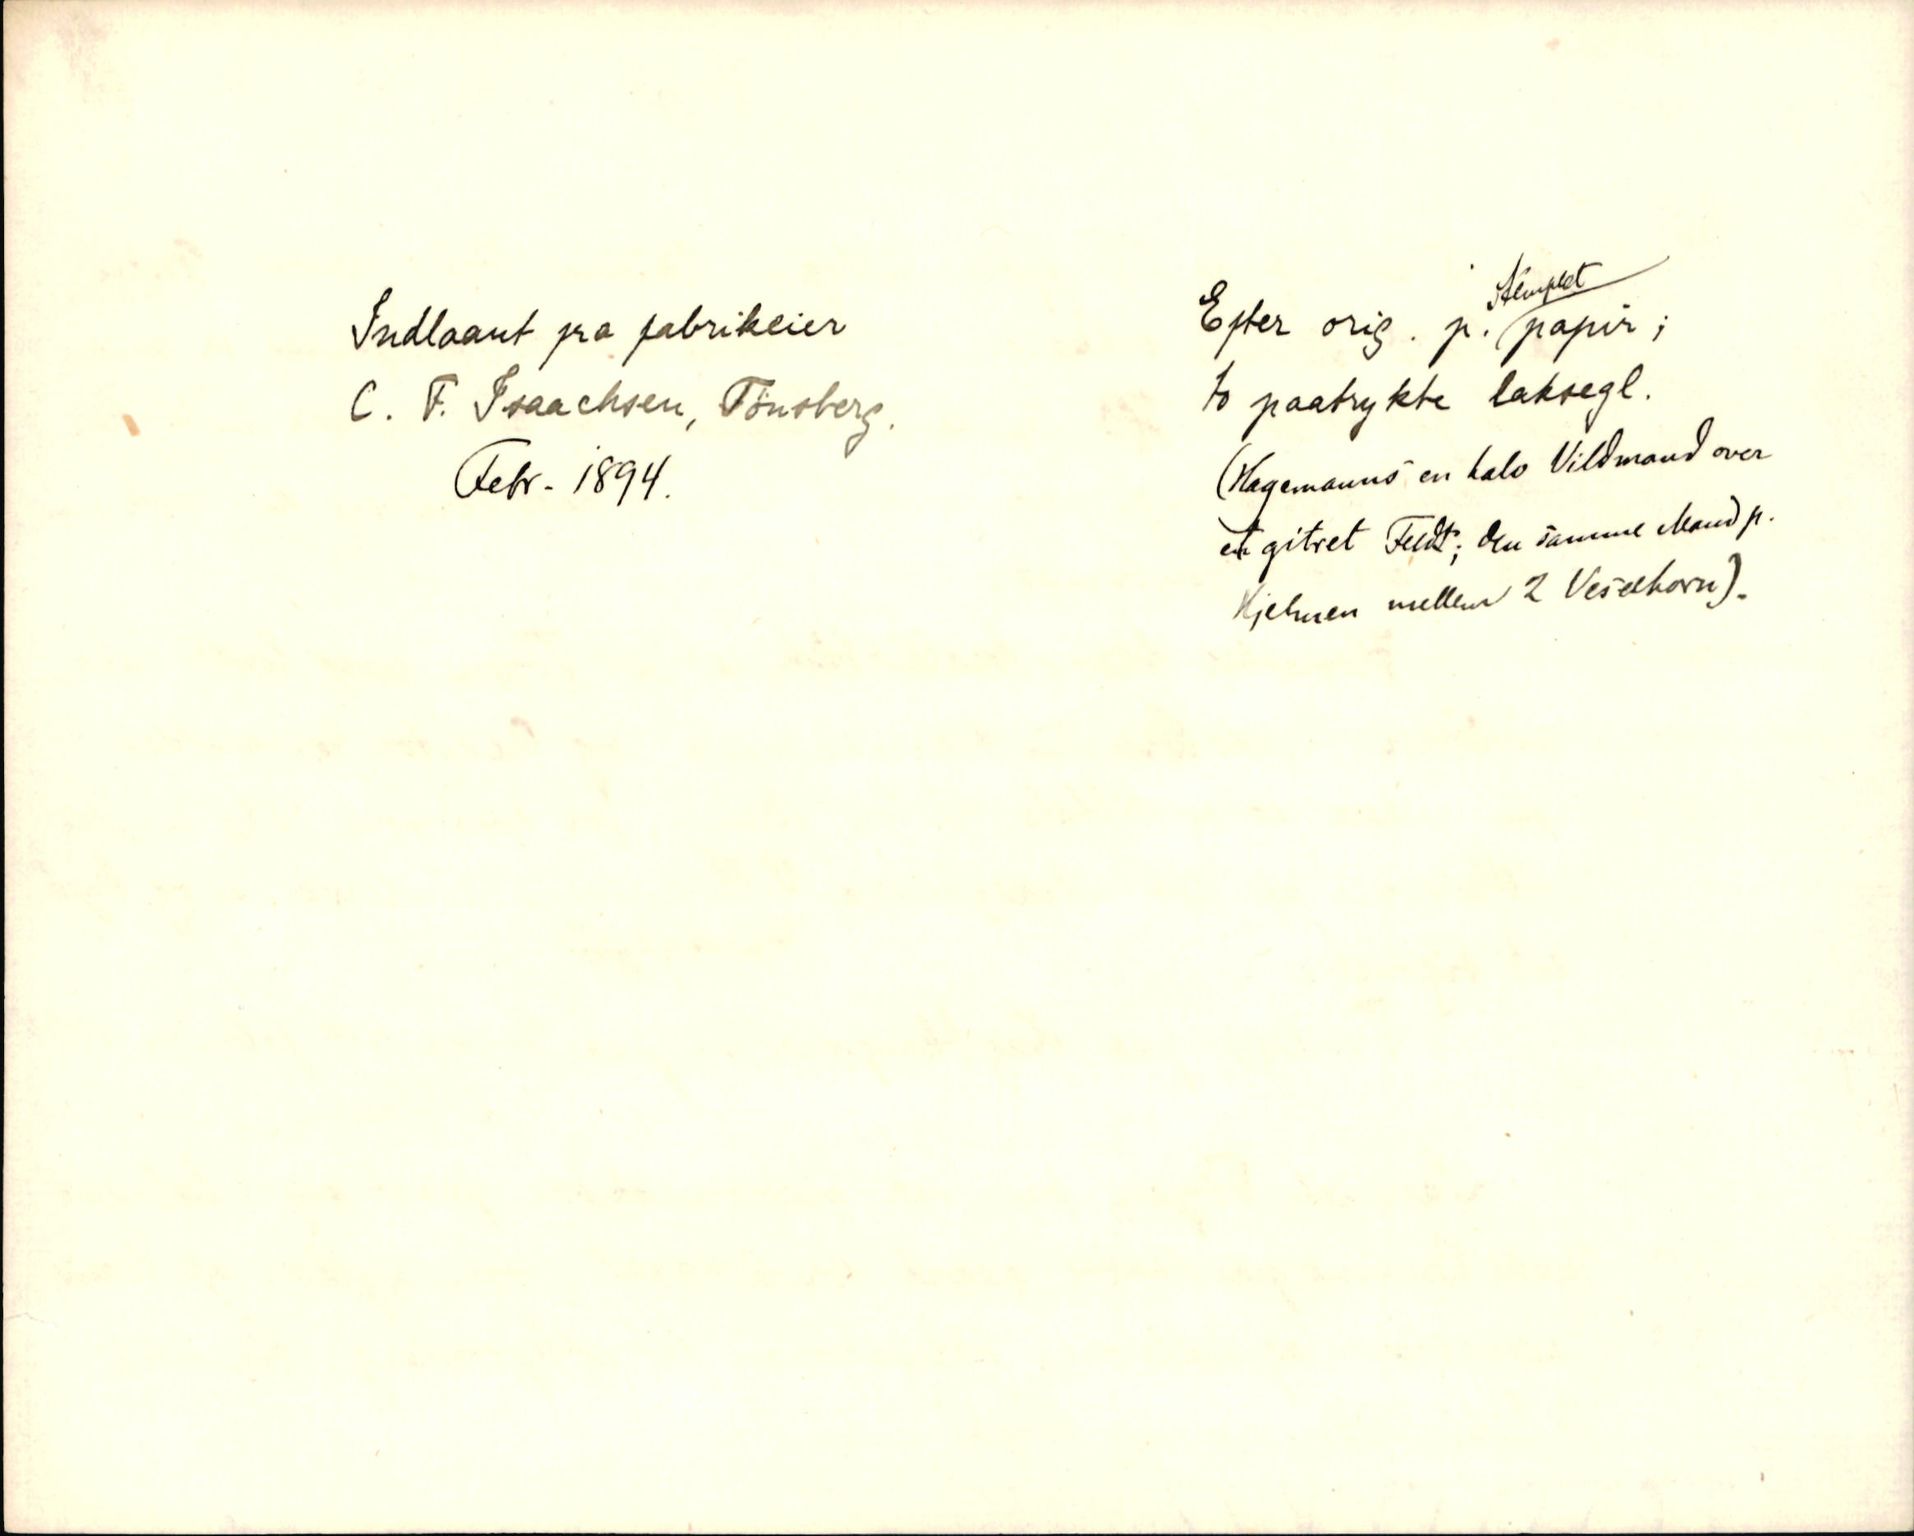 Indlaant fra fabrikeier
C. F. Isaachsen, Tönsberg.
Febr. 1894.
Efter orig. p. stemplet papir;
to paatrykte laksegl.
(Hagemanns en halv Vildmand over
et gitret Feldt; den samme Mand p.
Hjelmen mellem 2 Veselhorn).